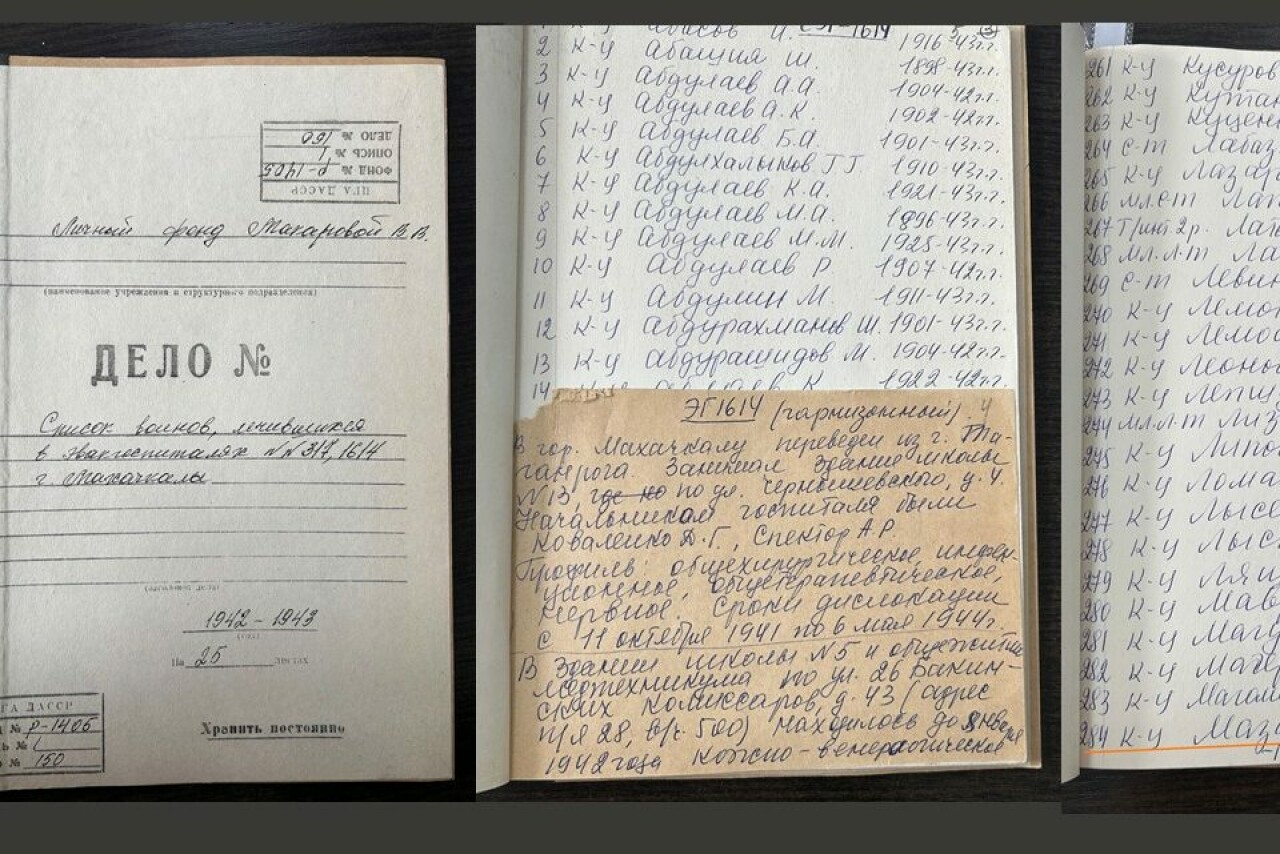 ЦГА ДАССР
ФОНД № Р-1405
ОПИСЬ № 1
ДЕЛО №
Личный фонд Макаровой В.В.
(наименование учреждения и структурного подразделения)
ДЕЛО №
Список воинов, лечившихся
в эвакгоспиталях №№317, 1614
г. Махачкалы
1942 - 1943
(год)
На 25 листах
ГА ДАССР
№ Р-1405
№ 1
№ 150
Хранить постоянно
1614
1916-43г.г.
2 к-ц Абашия Ш. 1898-43г.г.
3 к-ц Абдулаев А.А. 1904-42г.г.
4 к-ц Абдулаев А.К. 1902-42г.г.
5 к-ц Абдулаев Б.А. 1901-43г.г.
6 к-ц Абдулхалыков Г.Г. 1910-43г.г.
7 к-ц Абдулаев К.А. 1921-43г.г.
8 к-ц Абдулаев М.А. 1896-43г.г.
9 к-ц Абдулаев М.М. 1925-43г.г.
10 к-ц Абдулаев Р. 1907-42г.г.
11 к-ц Абдулин М. 1911-43г.г.
12 к-ц Абдурахманов Ш. 1901-43г.г.
13 к-ц Абдурашидов М. 1904-42г.г.
14 К. 1922-42г.г.
ЭГ1614 (гарнизонный). 4
В гор. Махачкалу переведен из г. Та-
ганрога. Занимал здание школы
№13, где но по ул. Чернышевского, д. 4.
Начальником госпиталя были
Коваленко Д.Г., Спектор А.Р.
Профиль: общехирургическое, инфек-
ционное, общетерапевтическое,
нервное. Сроки дислокации
с 11 октября 1941 по 6 мая 1944г.
В здании школы №5 и общежитии
медтехникума по ул. 26 Бакин-
ских комиссаров, д. 43 (адрес
п/я 28, в/ч 500) находилось до 8 января
1942 года кожно-венерологическое
261 к-ц Кусуров
262 к-ц
263 к-ц Куцен
264 с-т Лабаз
265 к-ц Лазар
266 мл.с-т Лап
267 т/инт.2р. Лат
268 мл.л-т Ла
269 с-т Левин
270 к-ц Лемо
271 к-ц Лемо
272 к-ц Леоно
273 к-ц Лепи
274 мл.л-т Лиз
275 к-ц Липо
276 к-ц Лома
277 к-ц Лысе
278 к-ц Лыс
279 к-ц Ляш
280 к-ц Мав
281 к-ц Магд
282 к-ц Маго
283 к-ц Магом
284 к-ц Маз